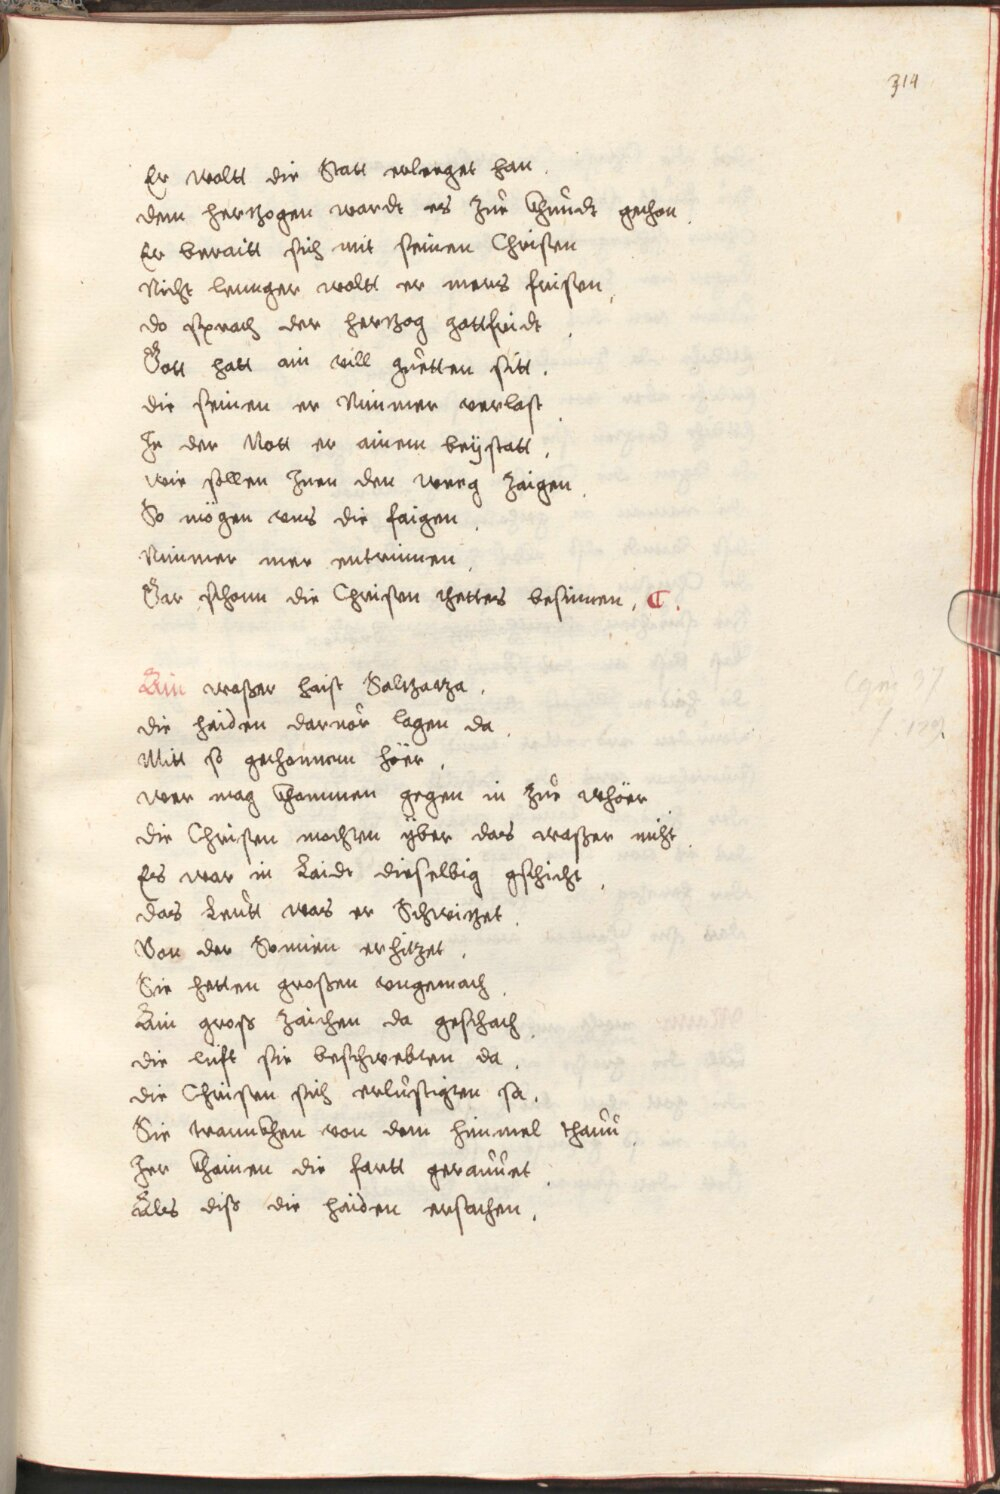 314
Er woltt die Statt erleeget han.
dem hertzogen wardt es zue khundt gethon.
Er beraitt sich mit seinen Christen
Nicht lennger woltt er mers fristen,
do sprach der hertzog gottfridt.
Gott hatt ain vill guetten sitt.
die seinen er Nimmer verlast.
In der Nott er ainem beystatt,
wir sollen Inen den weeg zaigen.
So mögen vns die faigen.
Nimmer mer entrinnen,
Gar schonn die Christen thettes besinnen, C.
Ain waßer haist Saltzatza.
die haiden darvor lagen da.
Mitt so gethonnem höer,
wer mag khommen gegen in zue whöer.
die Christen mochten über das waßer nicht.
Es war in Laidt dieselbig gschicht,
das Leütt was er Schwitzet.
Von der Sonnen erhitzet,
Sie hetten großen vngemach.
Ain groß zaichen da geschach.
die lüft sie beschwebten da.
die Christen sich erlustigten sa.
Sie trannkhen von dem himmel thauu.
Ier khainen die fartt gerauuet.
Als diß die haiden ersachen,
Cgm 37
f. 129